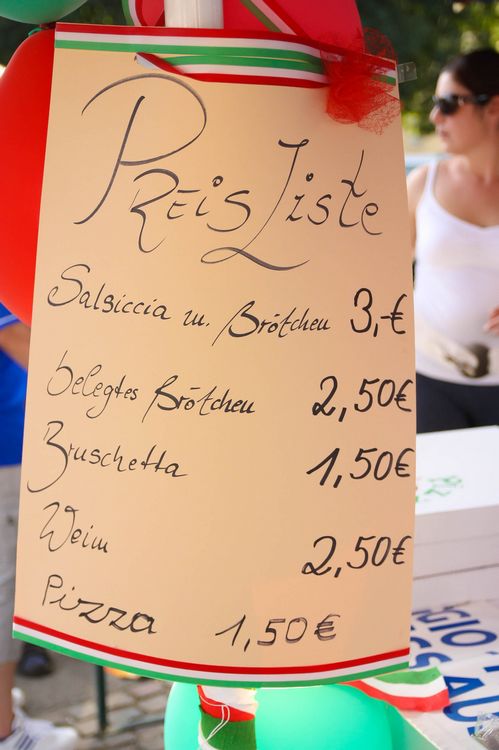 Preis Liste
Salsiccia m. Brötchen 3,-€
belegtes Brötchen 2,50€
Bruschetta 1,50€
Wein 2,50€
Pizza 1,50€